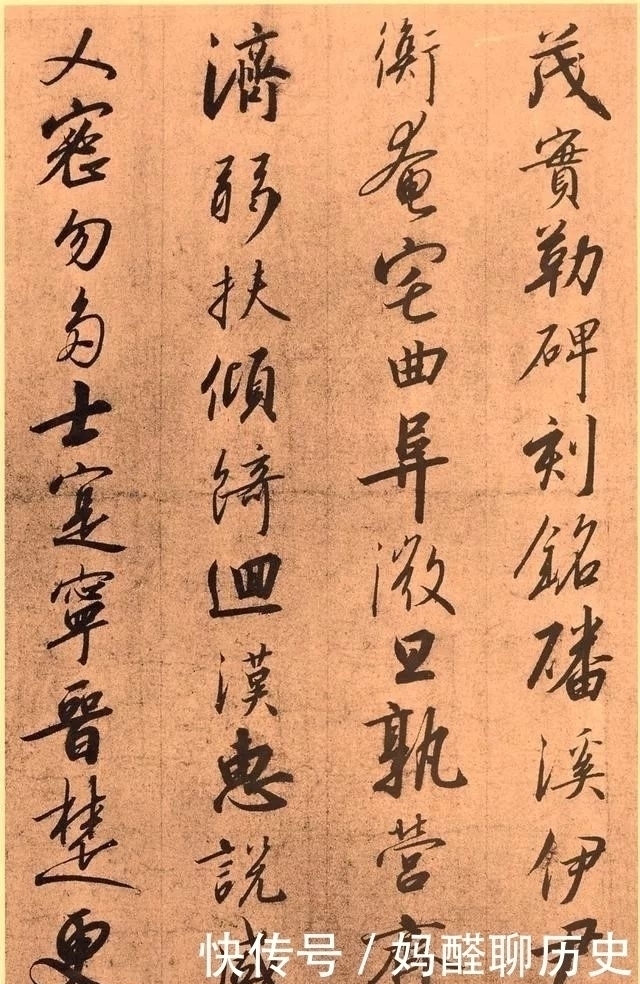 茂實勒碑刻銘磻溪伊尹
衡奄宅曲阜微旦孰營
濟弱扶傾綺迴漢惠說感
乂密勿多士寔寧晉楚更
快传号 / 妈醛聊历史